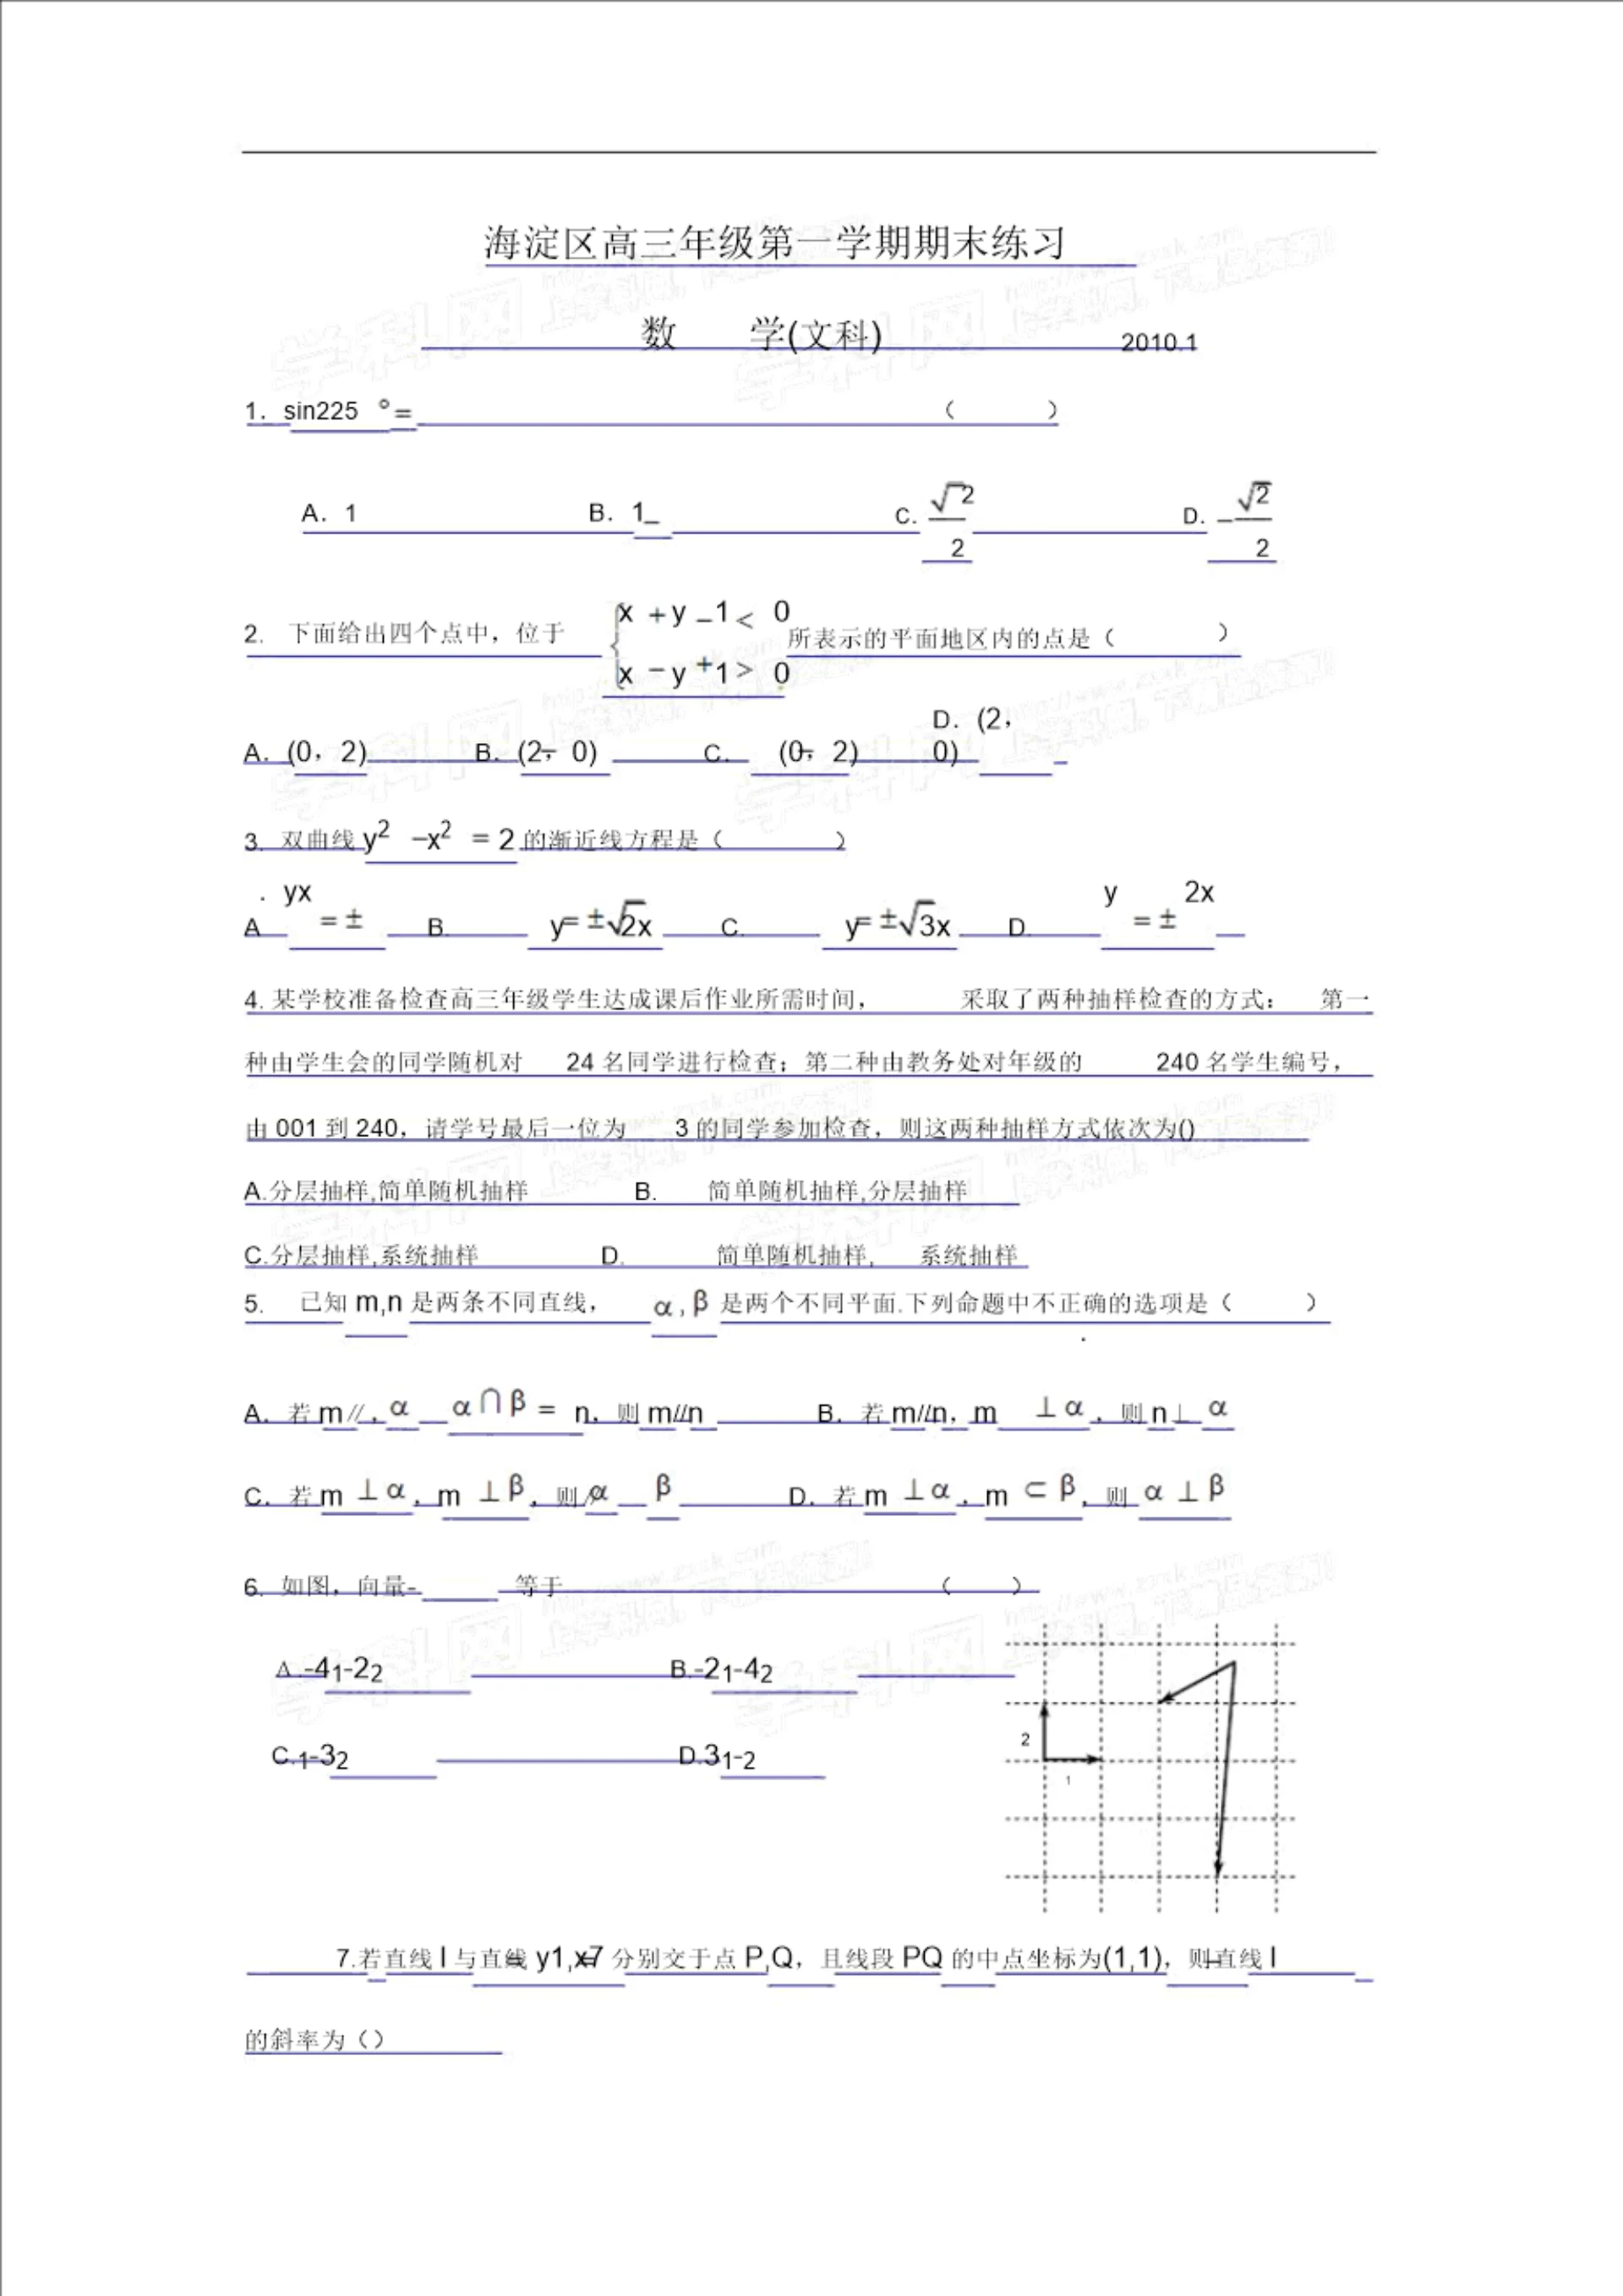 海淀区高三年级第一学期期末练习
数 学(文科) 2010.1
1. sin225 °= ( )
A. 1 B. 1- C. √2/2 D. -√2/2
2. 下面给出四个点中，位于 { x + y - 1 < 0 所表示的平面地区内的点是（ ）
x - y + 1 > 0
A. (0，2) B. (2，- 0) C. (0，- 2) D. (2，0)
3. 双曲线 y² - x² = 2 的渐近线方程是（ ）
A. yx = ± B. y= ±√2x C. y= ±√3x D. y = ± 2x
4. 某学校准备检查高三年级学生达成课后作业所需时间， 采取了两种抽样检查的方式： 第一
种由学生会的同学随机对 24 名同学进行检查；第二种由教务处对年级的 240 名学生编号，
由 001 到 240，请学号最后一位为 3 的同学参加检查，则这两种抽样方式依次为()
A.分层抽样,简单随机抽样 B. 简单随机抽样,分层抽样
C.分层抽样,系统抽样 D. 简单随机抽样, 系统抽样
5. 已知 m,n 是两条不同直线， α , β 是两个不同平面.下列命题中不正确的选项是（ ）
A. 若 m // , α α ∩ β = n，则 m//n B. 若 m//n，m ⊥ α ，则 n⊥ α
C. 若 m ⊥ α , m ⊥ β ，则 //α β D. 若 m ⊥ α , m ⊂ β ，则 α ⊥ β
6. 如图，向量- 等于 ( )
A .-41-22 B.-21-42
C.1-32 D.31-2
2
1
7.若直线 l 与直线 y1,x=7 分别交于点 P,Q，且线段 PQ 的中点坐标为(1,1)，则-直线 l
的斜率为（）